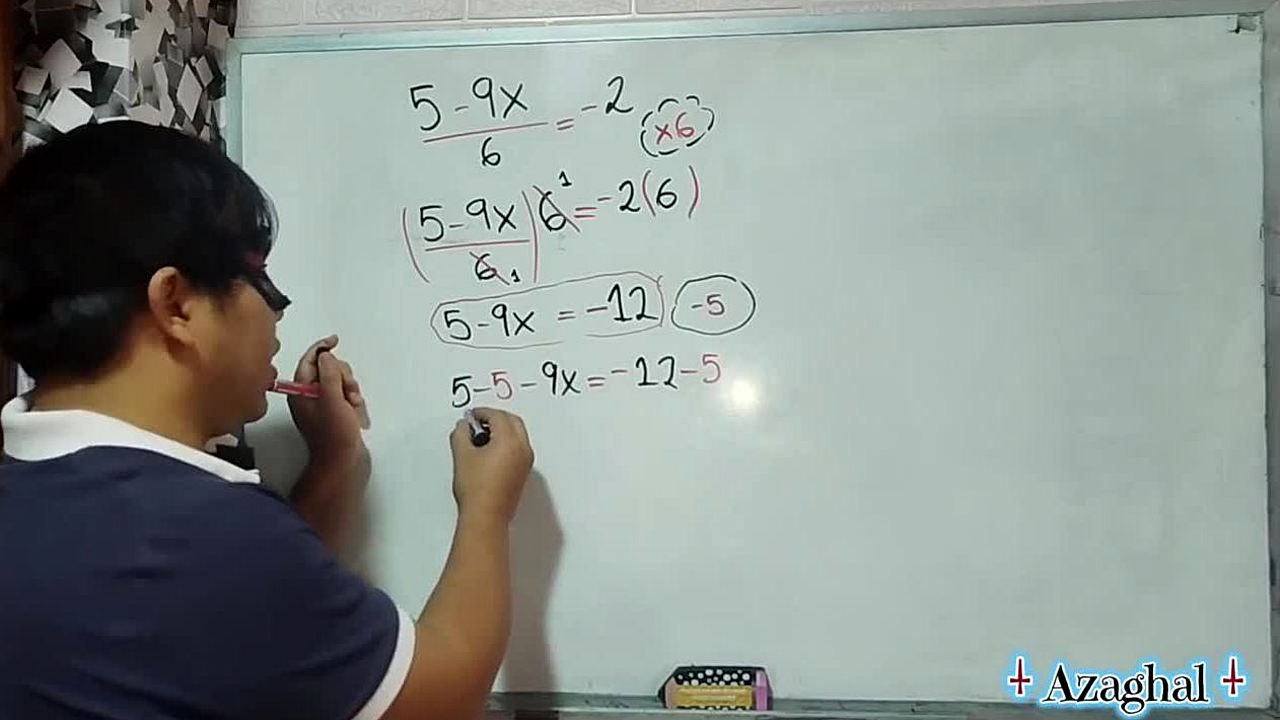 5 - 9x / 6 = -2 ×6
(5 - 9x / 6 1) 6 1 = -2(6)
5 - 9x = -12 -5
5 - 5 - 9x = -12 - 5
Azaghal